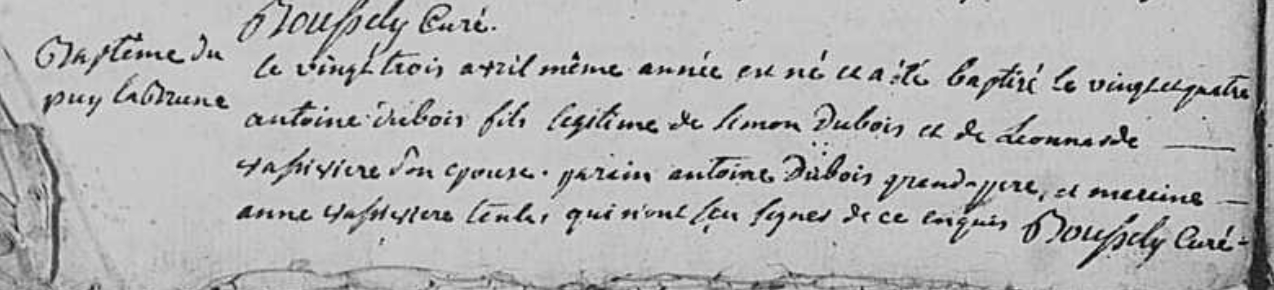 Roussely Curé.
Baptême du
puy labrune
le vingt trois avril même année est né et a été baptisé le vingt et quatre
antoine dubois fils legitime de simon Dubois et de Leonnarde
vassiviere son epouse. parain antoine Dubois grand-pere, et mareine
anne vassiviere tente, qui n'ont sçu signer de ce enquis Roussely Curé.